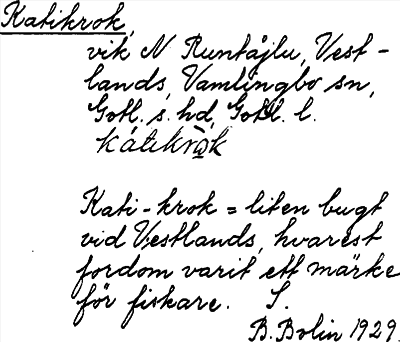 Katikrok,
vik N Runtåjlu, Vest-
lands, Vamlingbo sn,
Gotl. s. hd, Gotl. l.
kátikrò̰k
Kati-krok = liten bugt
vid Vestlands, hvarest
fordom varit ett märke
för fiskare. S.
B. Bolin 1929.